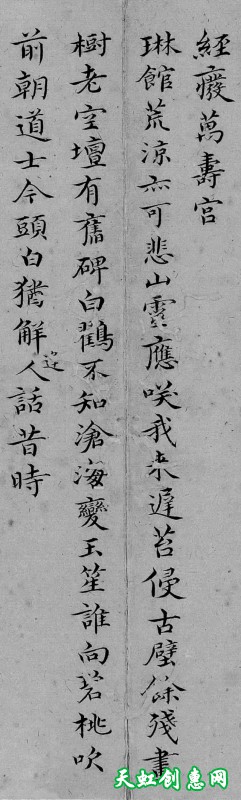 經癈萬壽宮
琳館荒涼亦可悲山靈應咲我來遲苔侵古壁餘殘畫
樹老空壇有舊碑白鶴不知滄海變玉笙誰向碧桃吹
前朝道士今頭白猶解逢人話昔時
天虹创惠网